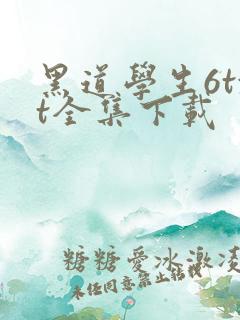 黑道學生6tx
t全集下載
糖糖愛冰激凌
未任同意禁止轉載